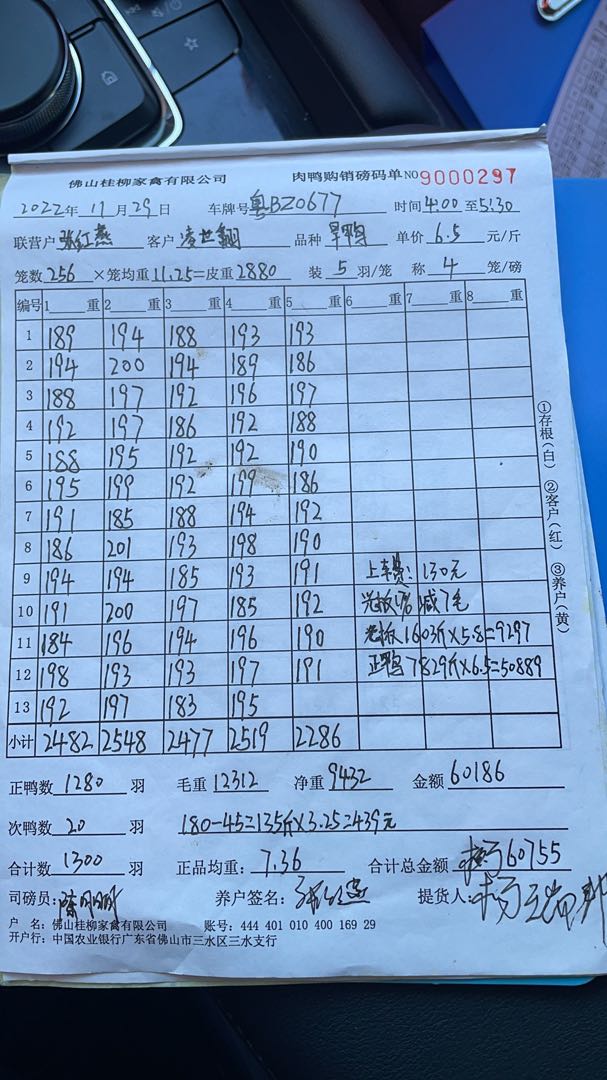 佛山桂柳家禽有限公司 肉鸭购销磅码单 NO 9000297
2022年 11月29日 车牌号 粤BZ0677 时间 4:00 至 5:30
联营户 张红燕 客户 凌世翻 品种 旱鸭 单价 6.5 元/斤
笼数 256 ×笼均重 11.25=皮重 2880 装 5 羽/笼 称 4 笼/磅
编号 1 重 2 重 3 重 4 重 5 重 6 重 7 重 8 重
1 189 194 188 193 193
2 194 200 194 189 186
3 188 197 192 196 197
4 192 197 186 192 188
5 188 195 192 192 190
6 195 199 192 199 186
7 191 185 188 194 192
8 186 201 193 198 190
9 194 194 185 193 191 上车费: 130元
10 191 200 197 185 192 减7毛
11 184 196 194 196 190 1603斤×5.8=9297
12 198 193 193 197 191 正鸭 7829斤×6.5=50889
13 192 197 183 195
小计 2482 2548 2477 2519 2286
①存根(白) ②客户(红) ③养户(黄)
正鸭数 1280 羽 毛重 12312 净重 9432 金额 60186
次鸭数 20 羽 180-45=135斤×3.25=439元
合计数 1300 羽 正品均重: 7.36 合计总金额 60755
司磅员: 养户签名: 提货人:
户 名: 佛山桂柳家禽有限公司 账号: 444 401 010 400 169 29
开户行: 中国农业银行广东省佛山市三水区三水支行